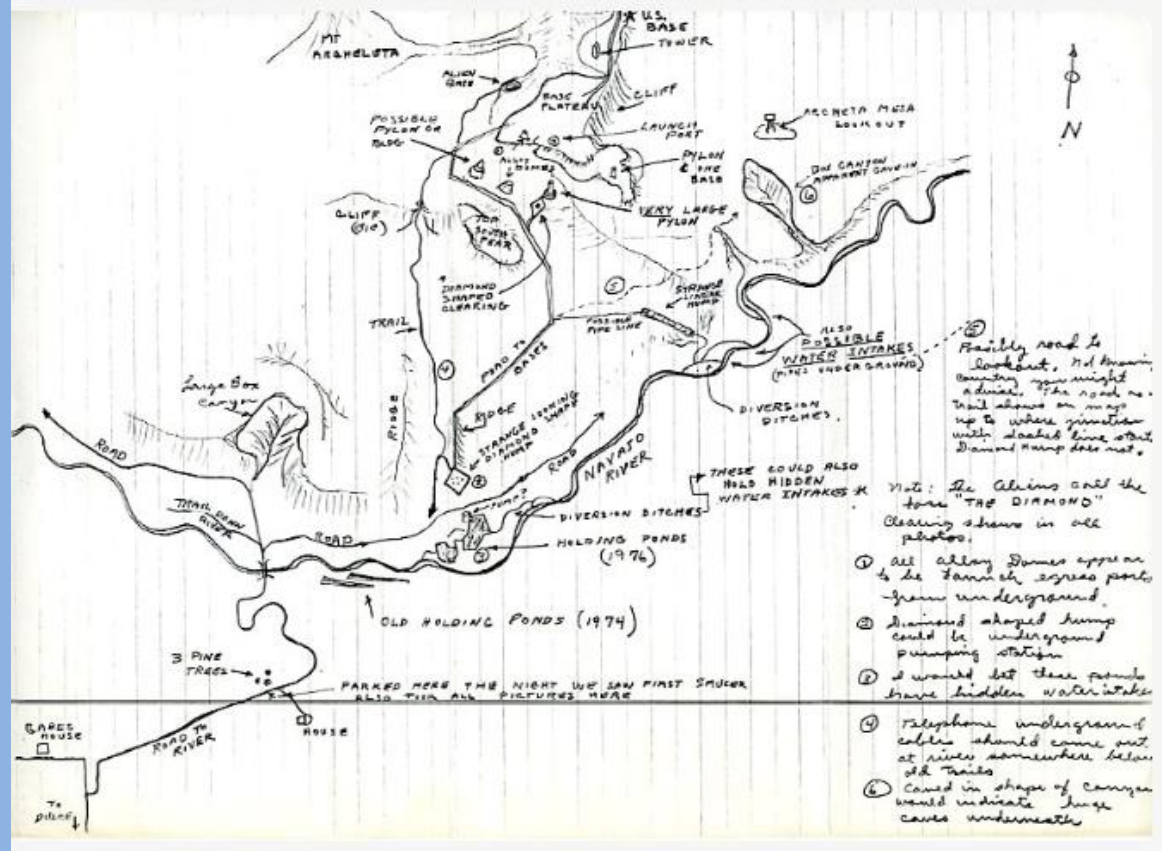 MT
ARCHELETA
U.S.
BASE
TOWER
ALIEN
BASE
BASE
PLATEAU
CLIFF
LAUNCH
PORT
POSSIBLE
PYLON OR
BLDG
ALLOY
DOMES
PYLON
& ONE
BASE
ARCHETA MESA
LOOKOUT
N
BOX CANYON
APPARENT CAVE-IN
6
VERY LARGE
PYLON
CLIFF
TOP
SOUTH
PEAK
DIAMOND
SHAPED
CLEARING
5
STRANGE
LINEAR
HUMP
POSSIBLE
PIPE LINE
TRAIL
ROAD TO
BASES
4
ALSO
POSSIBLE
WATER INTAKES
(PIPES UNDERGROUND)
DIVERSION
DITCHES
Large Box
Canyon
RIDGE
RIDGE
STRANGE LOOKING
DIAMOND SHAPE
HUMP
2
ROAD
NAVAJO
RIVER
ROAD
TRAIL DOWN
RIVER
ROAD
PUMP?
THESE COULD ALSO
HOLD HIDDEN
WATER INTAKES
DIVERSION DITCHES
HOLDING PONDS
(1976)
3
OLD HOLDING PONDS (1974)
3 PINE
TREES
PARKED HERE THE NIGHT WE SAW FIRST SAUCER
ALSO TOOK ALL PICTURES HERE
HOUSE
GABES
HOUSE
ROAD TO
RIVER
TO
DULCE
5
Possibly road to
lookout. Not knowing
country you might
advise. The road or
trail shows on map
up to where junction
with dashed line starts
Diamond Hump does not.
Note: The Aliens call the
base "THE DIAMOND"
Clearing shows in all
photos.
1 All alloy Domes appear
to be egress ports
from underground.
2 Diamond shaped hump
could be underground
pumping station
3 I would bet these ponds
have hidden water intakes
4 Telephone underground
cables should come out
at river somewhere below
old trails
6 Caved in shape of canyon
would indicate huge
caves underneath